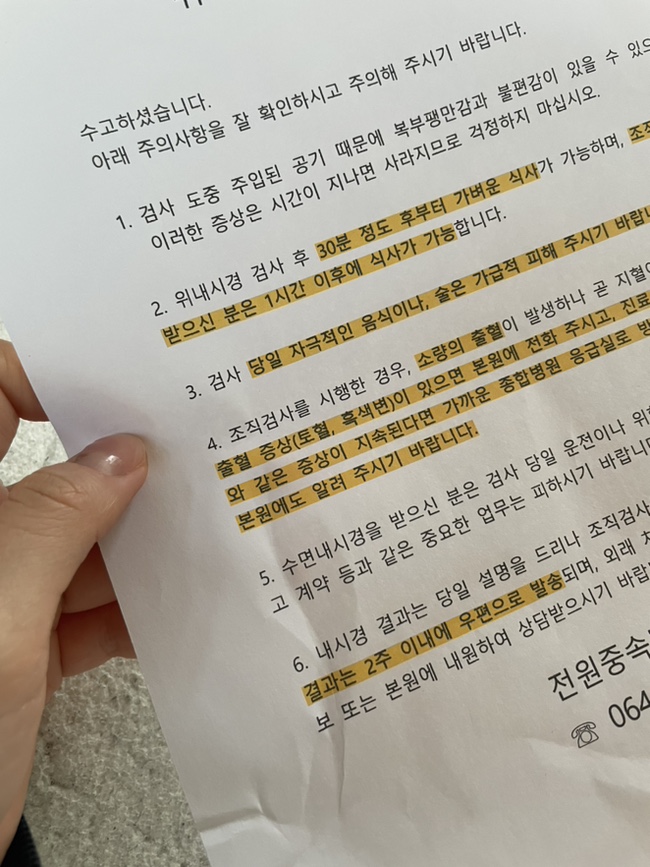 수고하셨습니다.
아래 주의사항을 잘 확인하시고 주의해 주시기 바랍니다.
1. 검사 도중 주입된 공기 때문에 복부팽만감과 불편감이 있을 수 있으
이러한 증상은 시간이 지나면 사라지므로 걱정하지 마십시오.
2. 위내시경 검사 후 30분 정도 후부터 가벼운 식사가 가능하며, 조직
받으신 분은 1시간 이후에 식사가 가능합니다.
3. 검사 당일 자극적인 음식이나, 술은 가급적 피해 주시기 바랍니
4. 조직검사를 시행한 경우, 소량의 출혈이 발생하나 곧 지혈
출혈 증상(토혈, 흑색변)이 있으면 본원에 전화 주시고, 진료
와 같은 증상이 지속된다면 가까운 종합병원 응급실로
본원에도 알려 주시기 바랍니다.
5. 수면내시경을 받으신 분은 검사 당일 운전이나 위험
고 계약 등과 같은 중요한 업무는 피하시기 바랍니
6. 내시경 결과는 당일 설명을 드리나 조직검사
결과는 2주 이내에 우편으로 발송되며, 외래
보 또는 본원에 내원하여 상담받으시기 바랍
전원중속
☏ 064